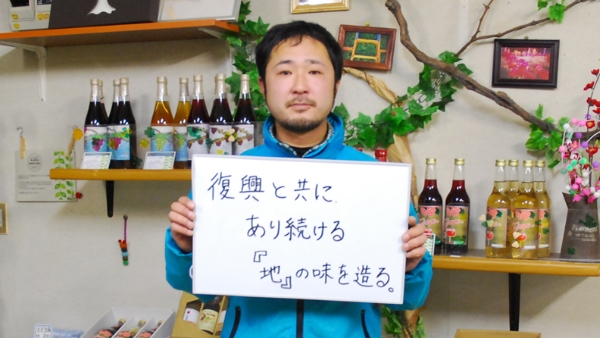 復興と共に
あり続ける
『地』の味を造る。